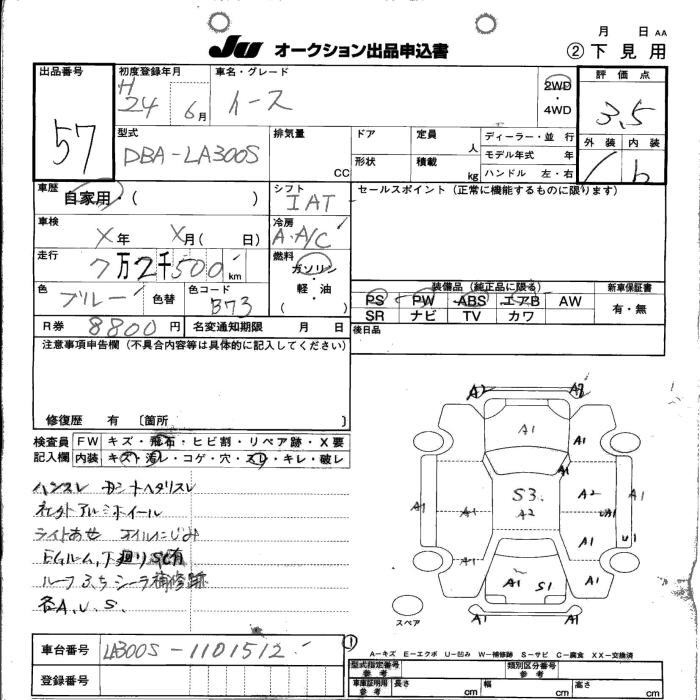 月 日 AA
JU オークション出品申込書 ②下見用
出品番号 初度登録年月 車名・グレード 評価点
57 H 24 6月 イース 2WD・4WD 3.5
外装 内装
b
型式 排気量 ドア 定員 ディーラー・並行
DBA-LA300S CC 人 モデル年式 年
形状 積載 kg ハンドル 左・右
車歴 シフト セールスポイント(正常に機能するものに限ります)
自家用・( ) IAT
車検 冷房
X年 X月( 日) A・A/C
走行 燃料
7万2千500km ガソリン・軽・油
( )
色 ブルー 色替 色コード B73
装備品(純正品に限る) 新車保証書
PS PW ABS エアB AW 有・無
SR ナビ TV カワ
R券 8800円 名変通知期限 月 日 後日品
注意事項申告欄(不具合内容等は具体的に記入してください)
修復歴 有 〔箇所 〕
検査員 FW キズ・飛石・ヒビ割・リペア跡・X要
記入欄 内装 キズ・汚レ・コゲ・穴・スレ・キレ・破レ
ハンスレ
社外アルミホイール
ライトあせ オイルにじみ
Eルーム,下廻りSC有
ルーフふちシーラ補修跡
各A.U.S.
A2
A1 A1
A1
S3 A2
A2
A1 A1 A1 U1
A1
A1 A1 S1 A1
A1 A1
スペア
A-キズ E-エクボ U-凹み W-補修跡 S-サビ C-腐食 XX-交換済
車台番号 LA300S-1101512
登録番号
①
型式指定番号 参考 類別区分番号 参考
車庫証明用 参考 長さ cm 幅 cm 高さ cm